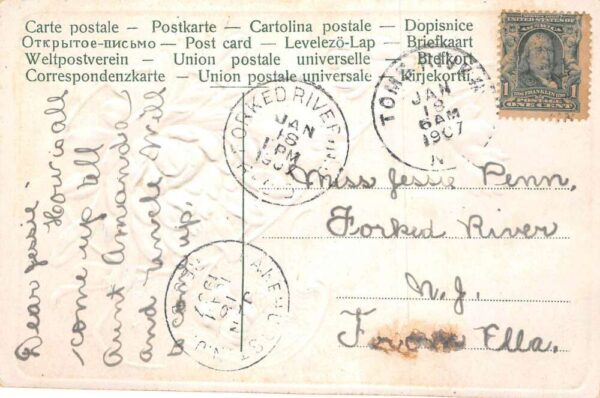 Carte postale — Postkarte — Cartolina postale — Dopisnice
Открытое-письмо — Post card — Levelező-Lap — Briefkaart
Weltpostverein — Union postale universelle — Brefkort
Correspondenzkarte — Union postale universale — Kirjekortti
UNITED STATES OF AMERICA
FRANKLIN
1 POSTAGE 1
ONE CENT
TOMS RIVER
JAN
18
6AM
1907
N.
FORKED RIVER
JAN
18
1 PM
1907
REC'D
LAKEHURST
N.J.
JAN
18
1907
Miss Jessie Penn,
Forked River
N. J.
From Ella.
Dear Jessie
How is all
come up tell
Aunt Amanda
and uncle Will
to come up.